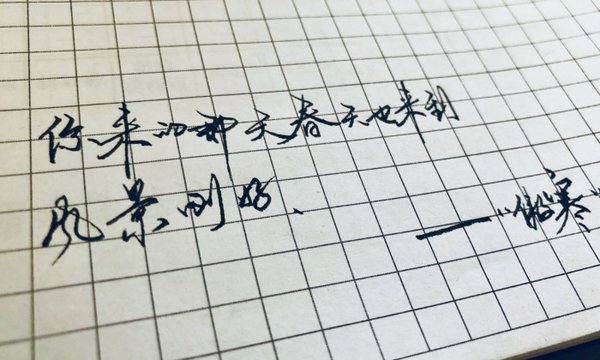 你来的那天春天也来到
风景刚好.